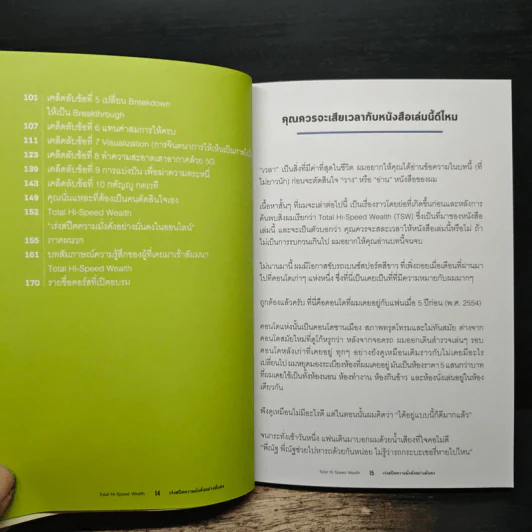 101 เคล็ดลับข้อที่ 5 เปลี่ยน Breakdown
ให้เป็น Breakthrough
107 เคล็ดลับข้อที่ 6 แทนค่าสมการให้ครบ
111 เคล็ดลับข้อที่ 7 Visualization (การจินตนาการให้เห็นเป็นภาพ
123 เคล็ดลับข้อที่ 8 ทำความสะอาดเสาอากาศด้วย 5G
139 เคล็ดลับข้อที่ 9 การแบ่งปัน เพื่อฆ่าความตระหนี่
143 เคล็ดลับข้อที่ 10 กตัญญู กตเวที
149 คุณนั่นแหละที่ต้องเป็นคนตัดสินใจเอง
152 Total Hi-Speed Wealth
"เร่งสปีดความมั่งคั่งอย่างมั่นคงในออนไลน์"
155 ภาคผนวก
161 บทสัมภาษณ์ความรู้สึกของผู้ที่เคยมาเข้าสัมมนา
Total Hi-Speed Wealth
170 รายชื่อคอร์สที่เปิดอบรม
Total Hi-Speed Wealth 14 เร่งสปีดความมั่งคั่งอย่างมั่นคง
คุณควรจะเสียเวลากับหนังสือเล่มนี้ดีไหม
"เวลา" เป็นสิ่งที่มีค่าที่สุดในชีวิต ผมอยากให้คุณได้อ่านข้อความในบทนี้ (ที่
ไม่ยาวนัก) ก่อนจะตัดสินใจ "วาง" หรือ "อ่าน" หนังสือของผม
เนื้อหาสั้นๆ ที่ผมจะเล่าต่อไปนี้ เป็นเรื่องราวโดยย่อที่เกิดขึ้นก่อนและหลังการ
ค้นพบสิ่งผมเรียกว่า Total Hi-Speed Wealth (TSW) ซึ่งเป็นที่มาของหนังสือ
เล่มนี้ และจะเป็นตัวบอกว่า คุณควรจะสละเวลาให้หนังสือเล่มนี้หรือไม่ ถ้า
ไม่เป็นการรบกวนเกินไป ผมอยากให้คุณอ่านบทนี้จนจบ
ไม่นานมานี้ ผมมีโอกาสขับรถเบนซ์สปอร์ตสีขาว ที่เพิ่งถอยเมื่อเดือนที่ผ่านมา
ไปที่คอนโดเก่าๆ แห่งหนึ่ง ซึ่งที่นี่เป็นเคยเป็นที่ที่มีความหมายกับผมมากๆ
ถูกต้องแล้วครับ ที่นี่คือคอนโดที่ผมเคยอยู่กับแฟนเมื่อ 5 ปีก่อน (พ.ศ. 2554)
คอนโดแห่งนั้นเป็นคอนโดชานเมือง สภาพทรุดโทรมและไม่ทันสมัย ต่างจาก
คอนโดสมัยใหม่ที่ดูโก้หรูกว่า หลังจากจอดรถ ผมออกเดินสำรวจเล่นๆ รอบ
คอนโดหลังเก่าที่เคยอยู่ ทุกๆ อย่างยังดูเหมือนเดิมราวกับไม่เคยมีอะไร
เปลี่ยนไป ผมหยุดมองระเบียงห้องที่ผมเคยอยู่ มันเป็นห้องราคา 5 แสนกว่าบาท
ที่ผมเคยใช้เป็นทั้งห้องนอน ห้องทำงาน ห้องกินข้าว และห้องนั่งเล่นอยู่ในห้อง
เดียวกัน
ฟังดูเหมือนไม่มีอะไรดี แต่ในตอนนั้นผมคิดว่า "ได้อยู่แบบนี้ก็ดีมากแล้ว"
จนกระทั่งเช้าวันหนึ่ง แฟนเดินมาบอกผมด้วยน้ำเสียงที่ใจคอไม่ดี
"พี่ณัฐ พี่ณัฐช่วยไปหารถด้วยกันหน่อย ไม่รู้ว่ารถกระบะเชอรี่หายไปไหน"
Total Hi-Speed Wealth 15 เร่งสปีดความมั่งคั่งอย่างมั่นคง